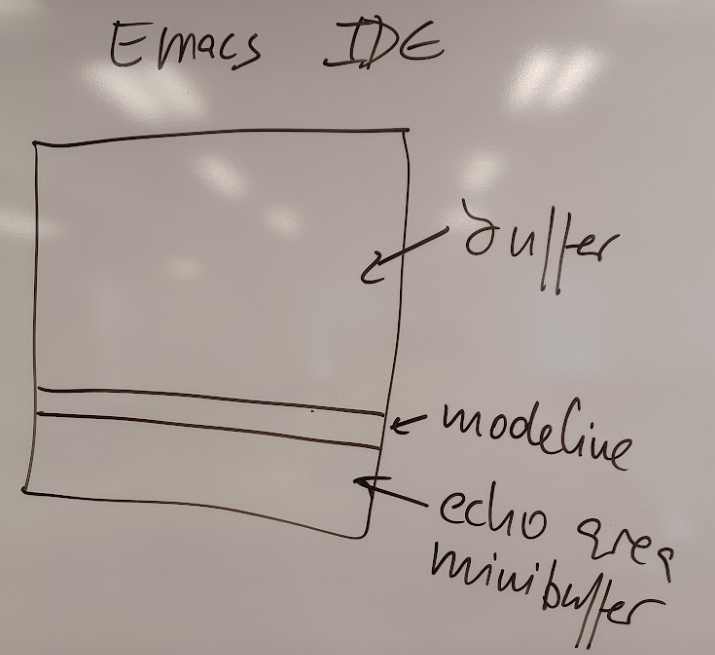 Emacs IDE
buffer
modeline
echo area
minibuffer